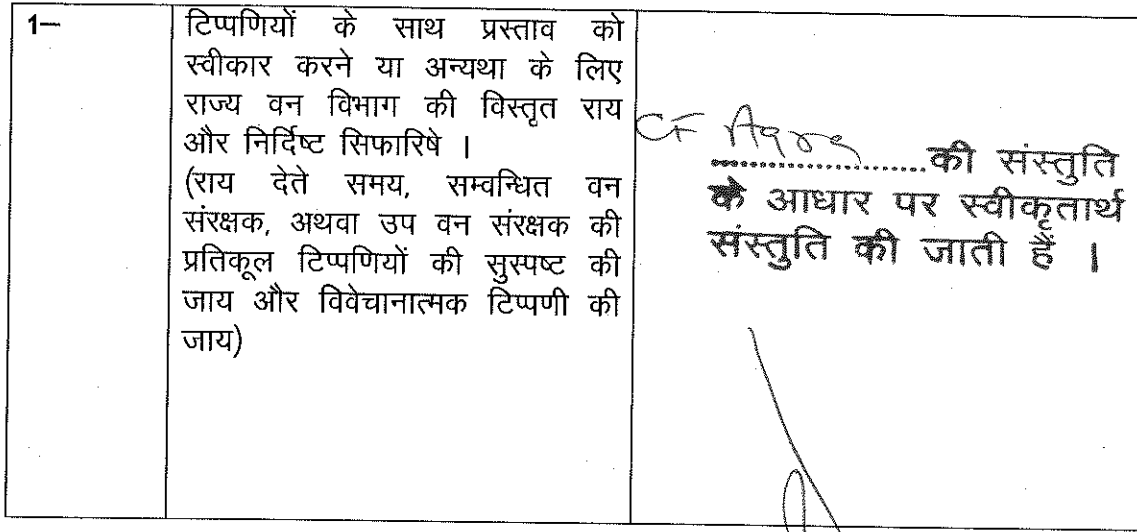 1–
टिप्पणियों के साथ प्रस्ताव को
स्वीकार करने या अन्यथा के लिए
राज्य वन विभाग की विस्तृत राय
और निर्दिष्ट सिफारिषे ।
(राय देते समय, सम्वन्धित वन
संरक्षक, अथवा उप वन संरक्षक की
प्रतिकूल टिप्पणियों की सुस्पष्ट की
जाय और विवेचानात्मक टिप्पणी की
जाय)
CF Agra की संस्तुति
के आधार पर स्वीकृतार्थ
संस्तुति की जाती हैं ।